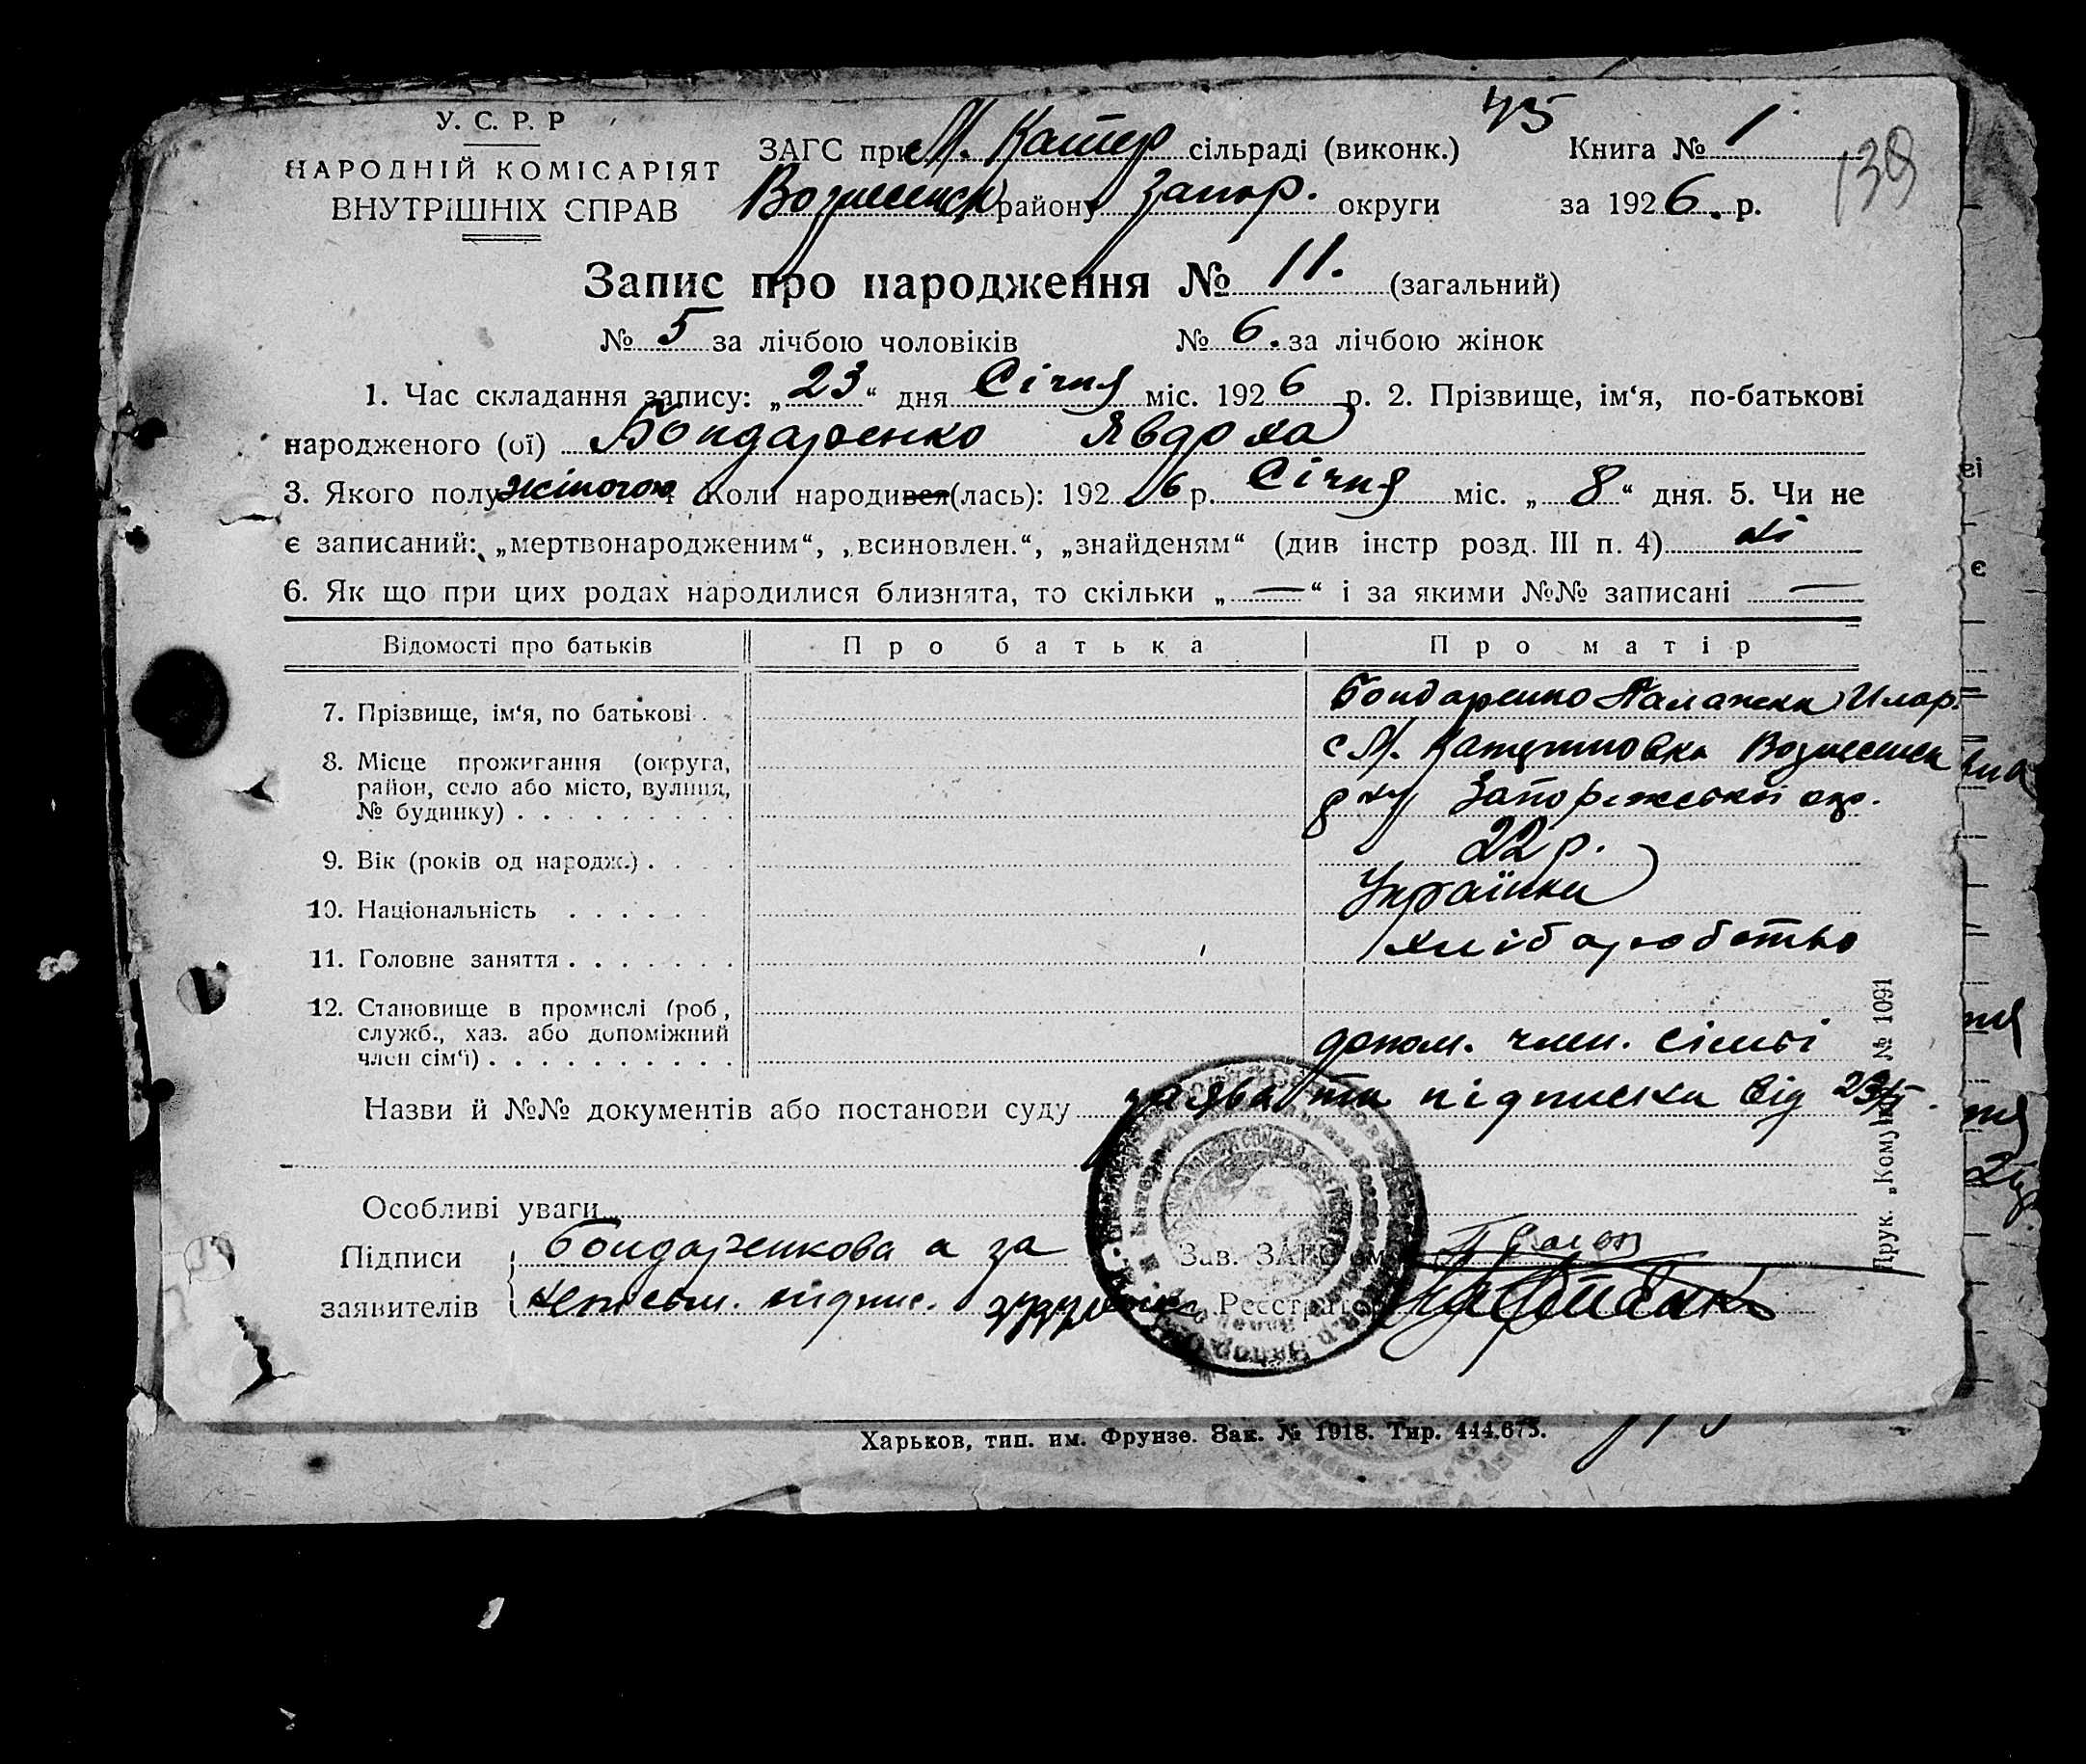 У. С. Р. Р
НАРОДНІЙ КОМІСАРІЯТ
ВНУТРІШНІХ СПРАВ
45
138
ЗАГС при М. Катер сільраді (виконк.) Книга № 1
Вознесенск району Запор. округи за 1926. р.
Запис про народження № 11. (загальний)
№ 5 за лічбою чоловіків № 6. за лічбою жінок
1. Час складання запису: „23“ дня Січня міс. 1926 р. 2. Прізвище, ім‘я, по-батькові
народженого (ої) Бондаренко Явдоха
3. Якого полу жіночого 4 Коли народивея(лась): 1926 р. Січня міс. „8“ дня. 5. Чи не
є записаний: „мертвонародженим“, „всиновлен.“, „знайденям“ (див інстр розд. III п. 4) ні
6. Як що при цих родах народилися близнята, то скільки „—“ і за якими №№ записані —
Відомості про батьків Про батька Про матір
7. Прізвище, ім‘я, по батькові . Бондаренко Палажка Илар.
8. Місце прожигання (округа, с М. Катериновка Вознесенск
район, село або місто, вулиця, р ну Запорежської окр.
№ будинку) . . . . . . . . .
9. Вік (років од народж.) . . . . 22 р.
10. Національність . . . . . Українка
11. Головне заняття . . . . . . . хліборобство
12. Становище в промислі (роб,
служб., хаз. або допоміжний
член сім‘ї) . . . . . . . . . . допом. член. сімьі
Назви й №№ документів або постанови суду заява та підписка від 23/I.
Особливі уваги
Підписи Бондаренкова а за Зав. ЗАГС‘ом
заявителів неписьм. підпис. Реєстрат
Друк. „Комунар“ № 1091
Харьков, тип. им. Фрунзе. Зак. № 1918. Тир. 444.675.